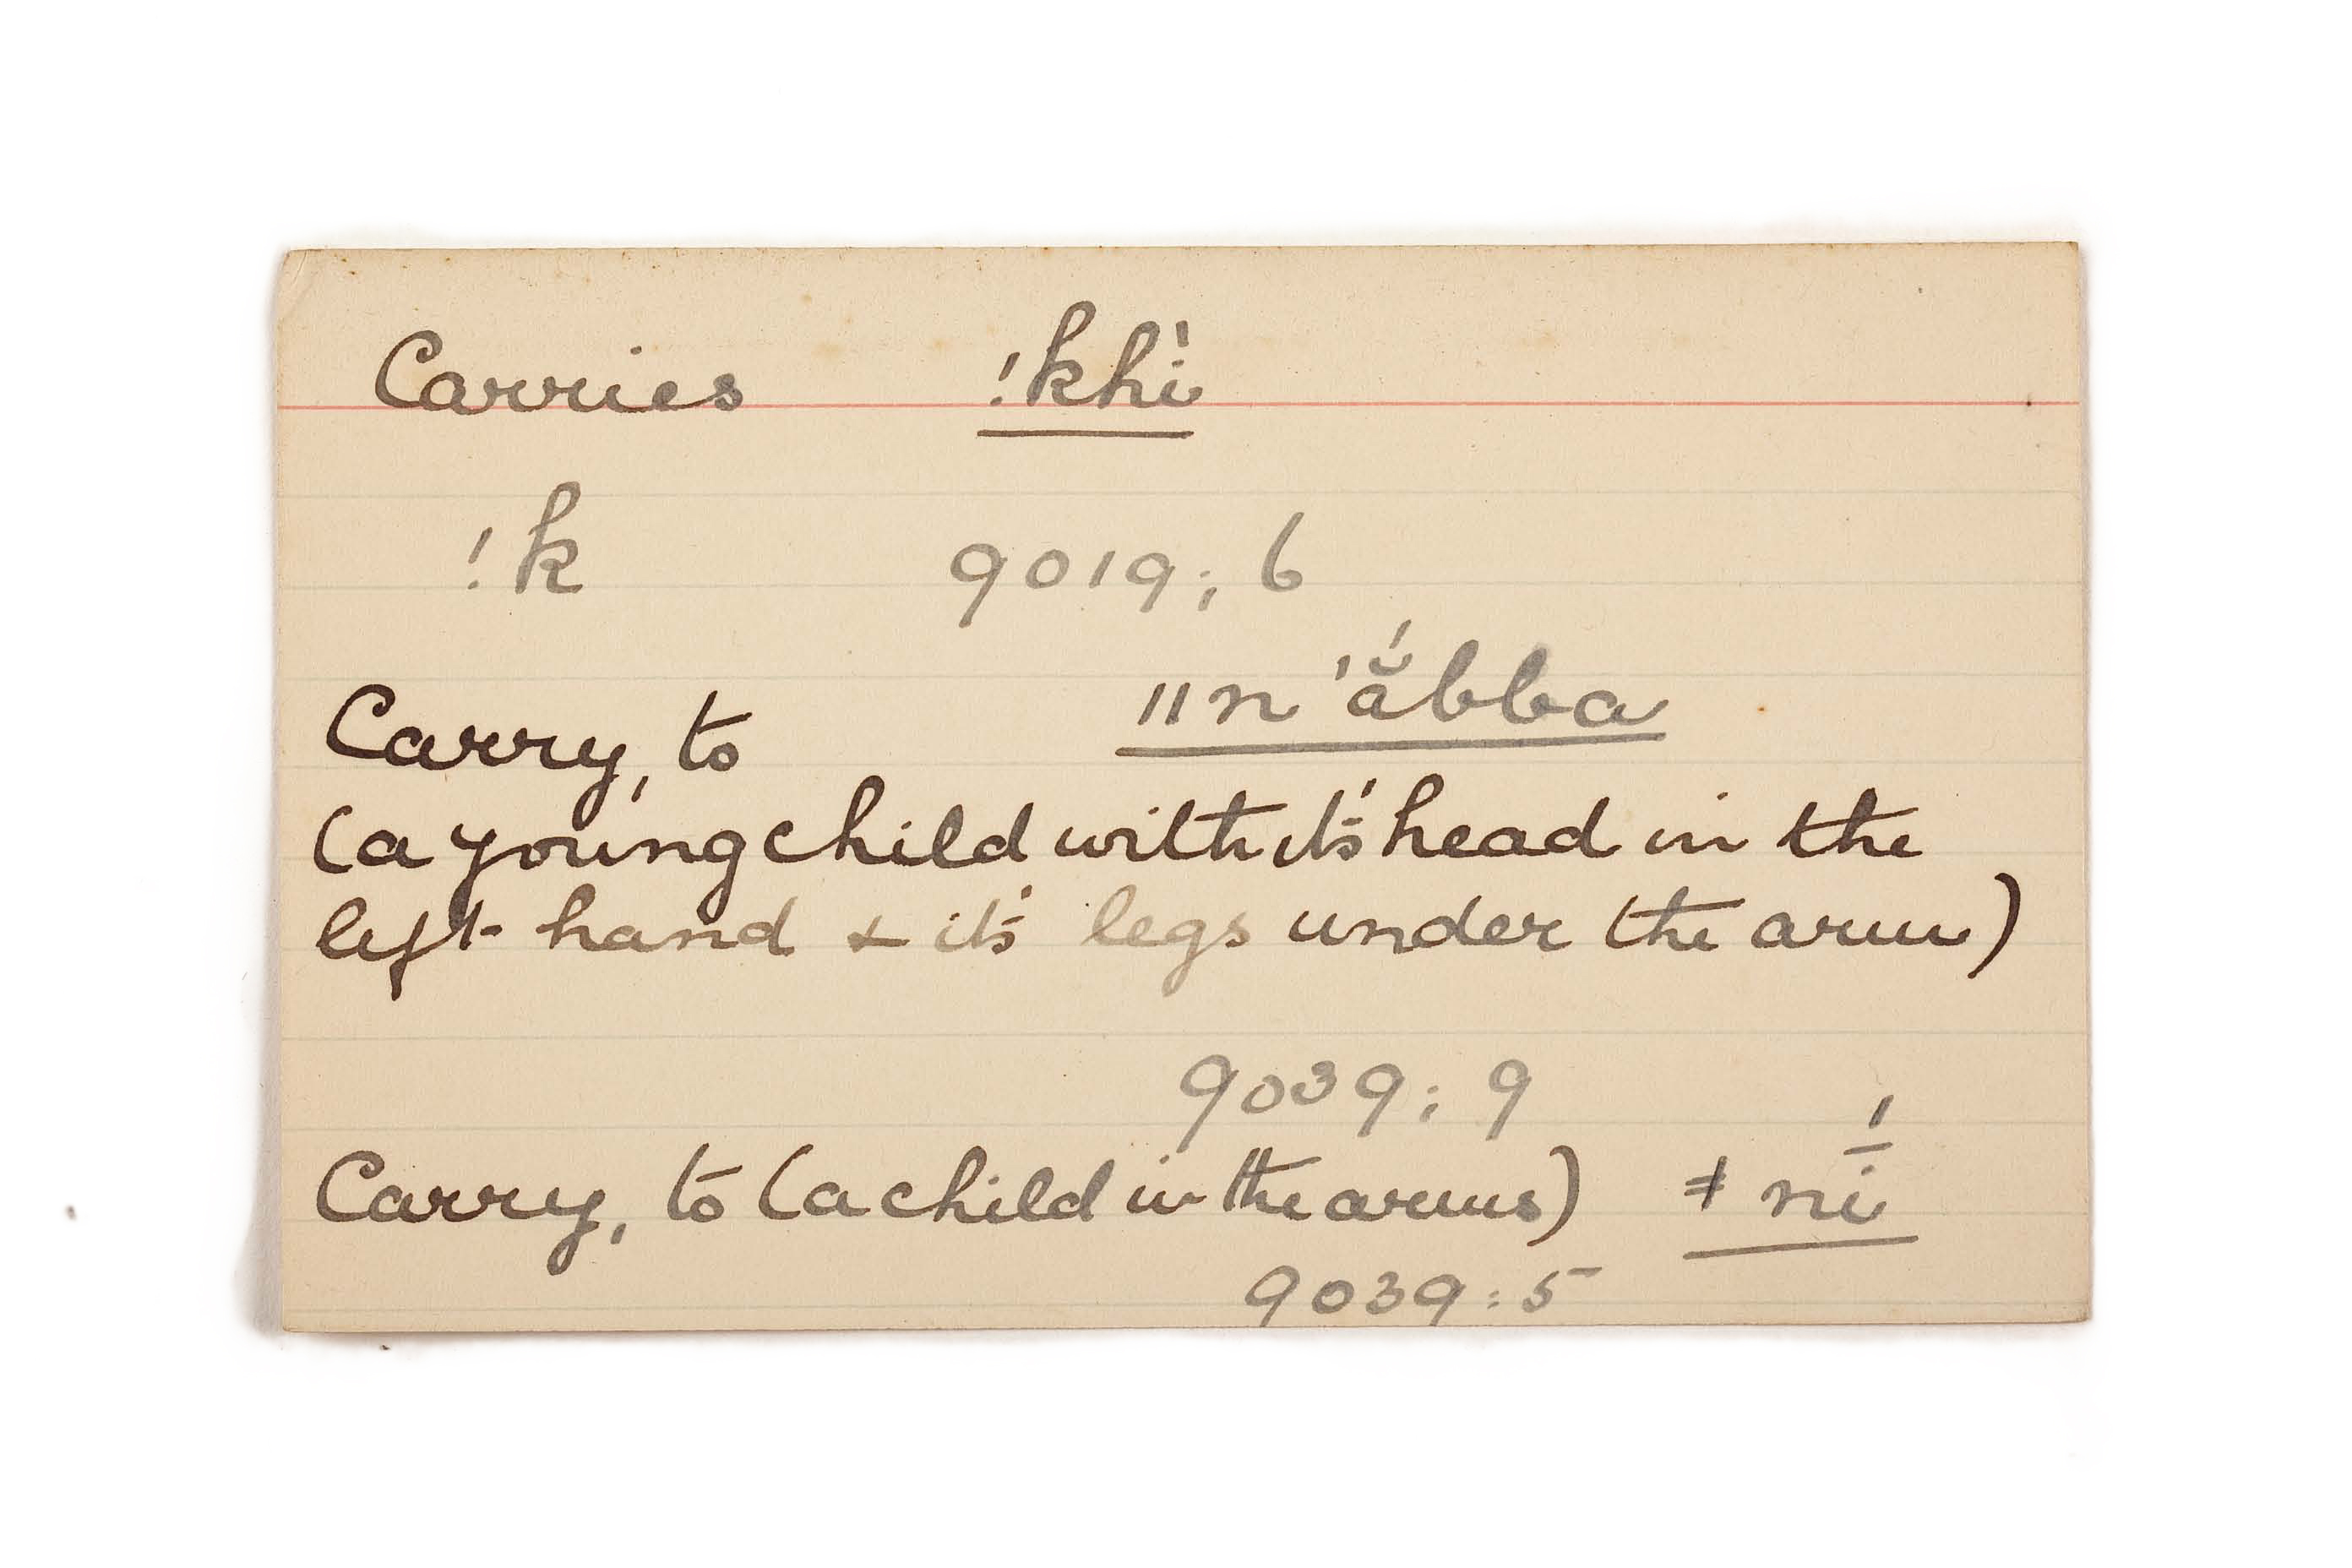 Carries !khí
!k 9019; 6
Carry, to ǁn'ắbba
(a young child with it's head in the
left hand & it's legs under the arm)
9039; 9
Carry, to (a child in the arms) ǂ nī́
9039: 5